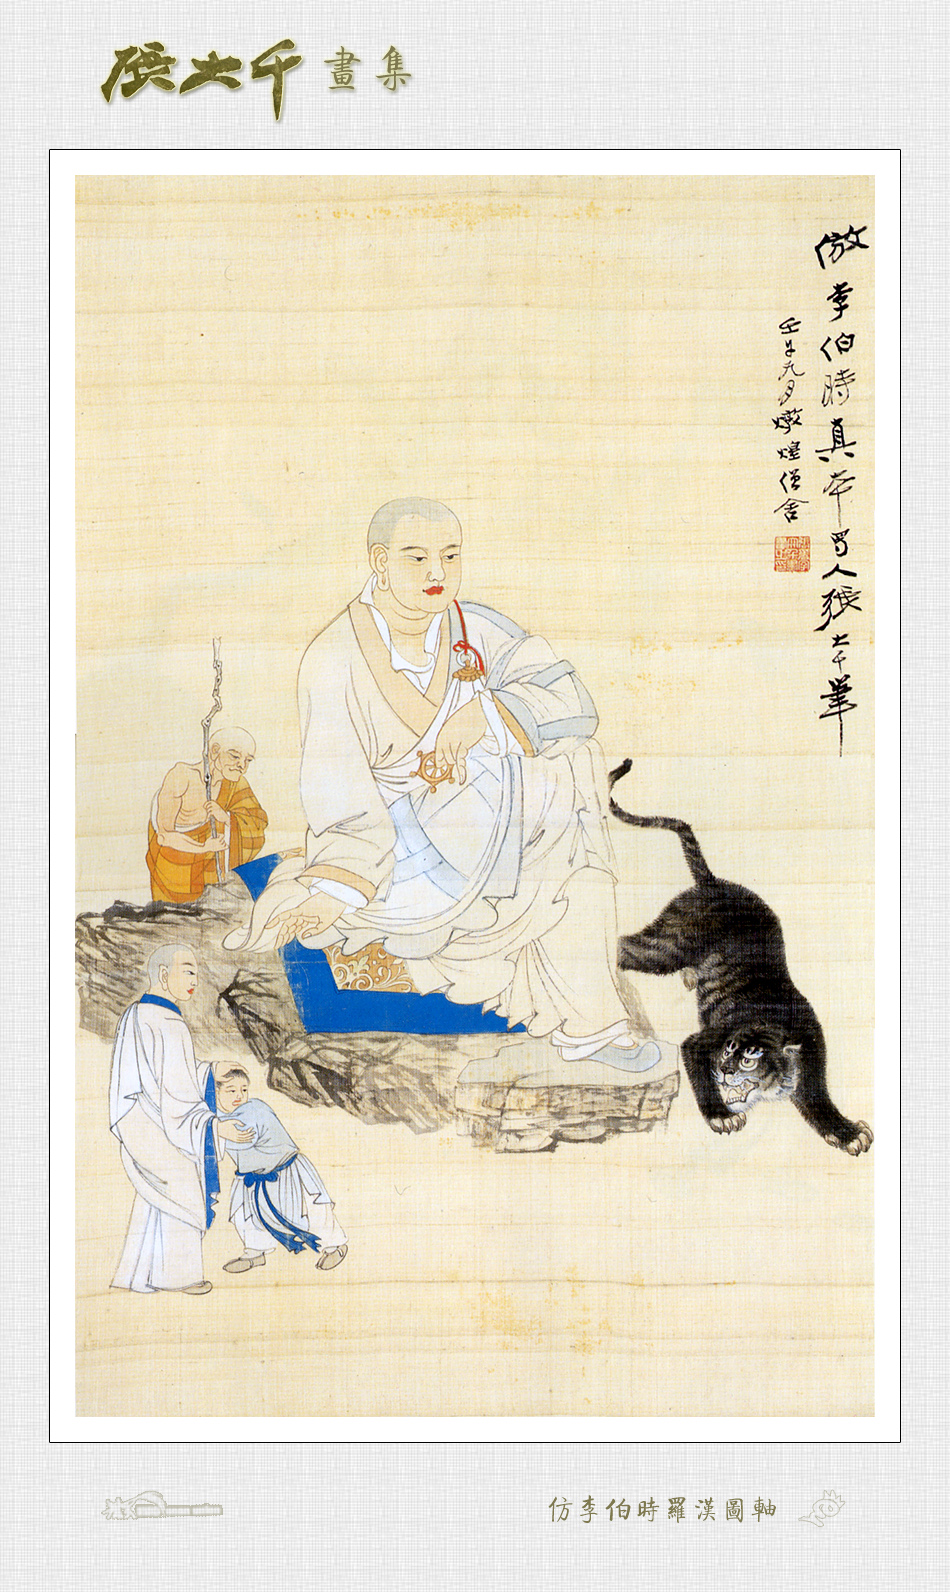 張大千 畫集
倣李伯時真本蜀人張大千筆
壬午九月燉煌僧舍
仿李伯時羅漢圖軸